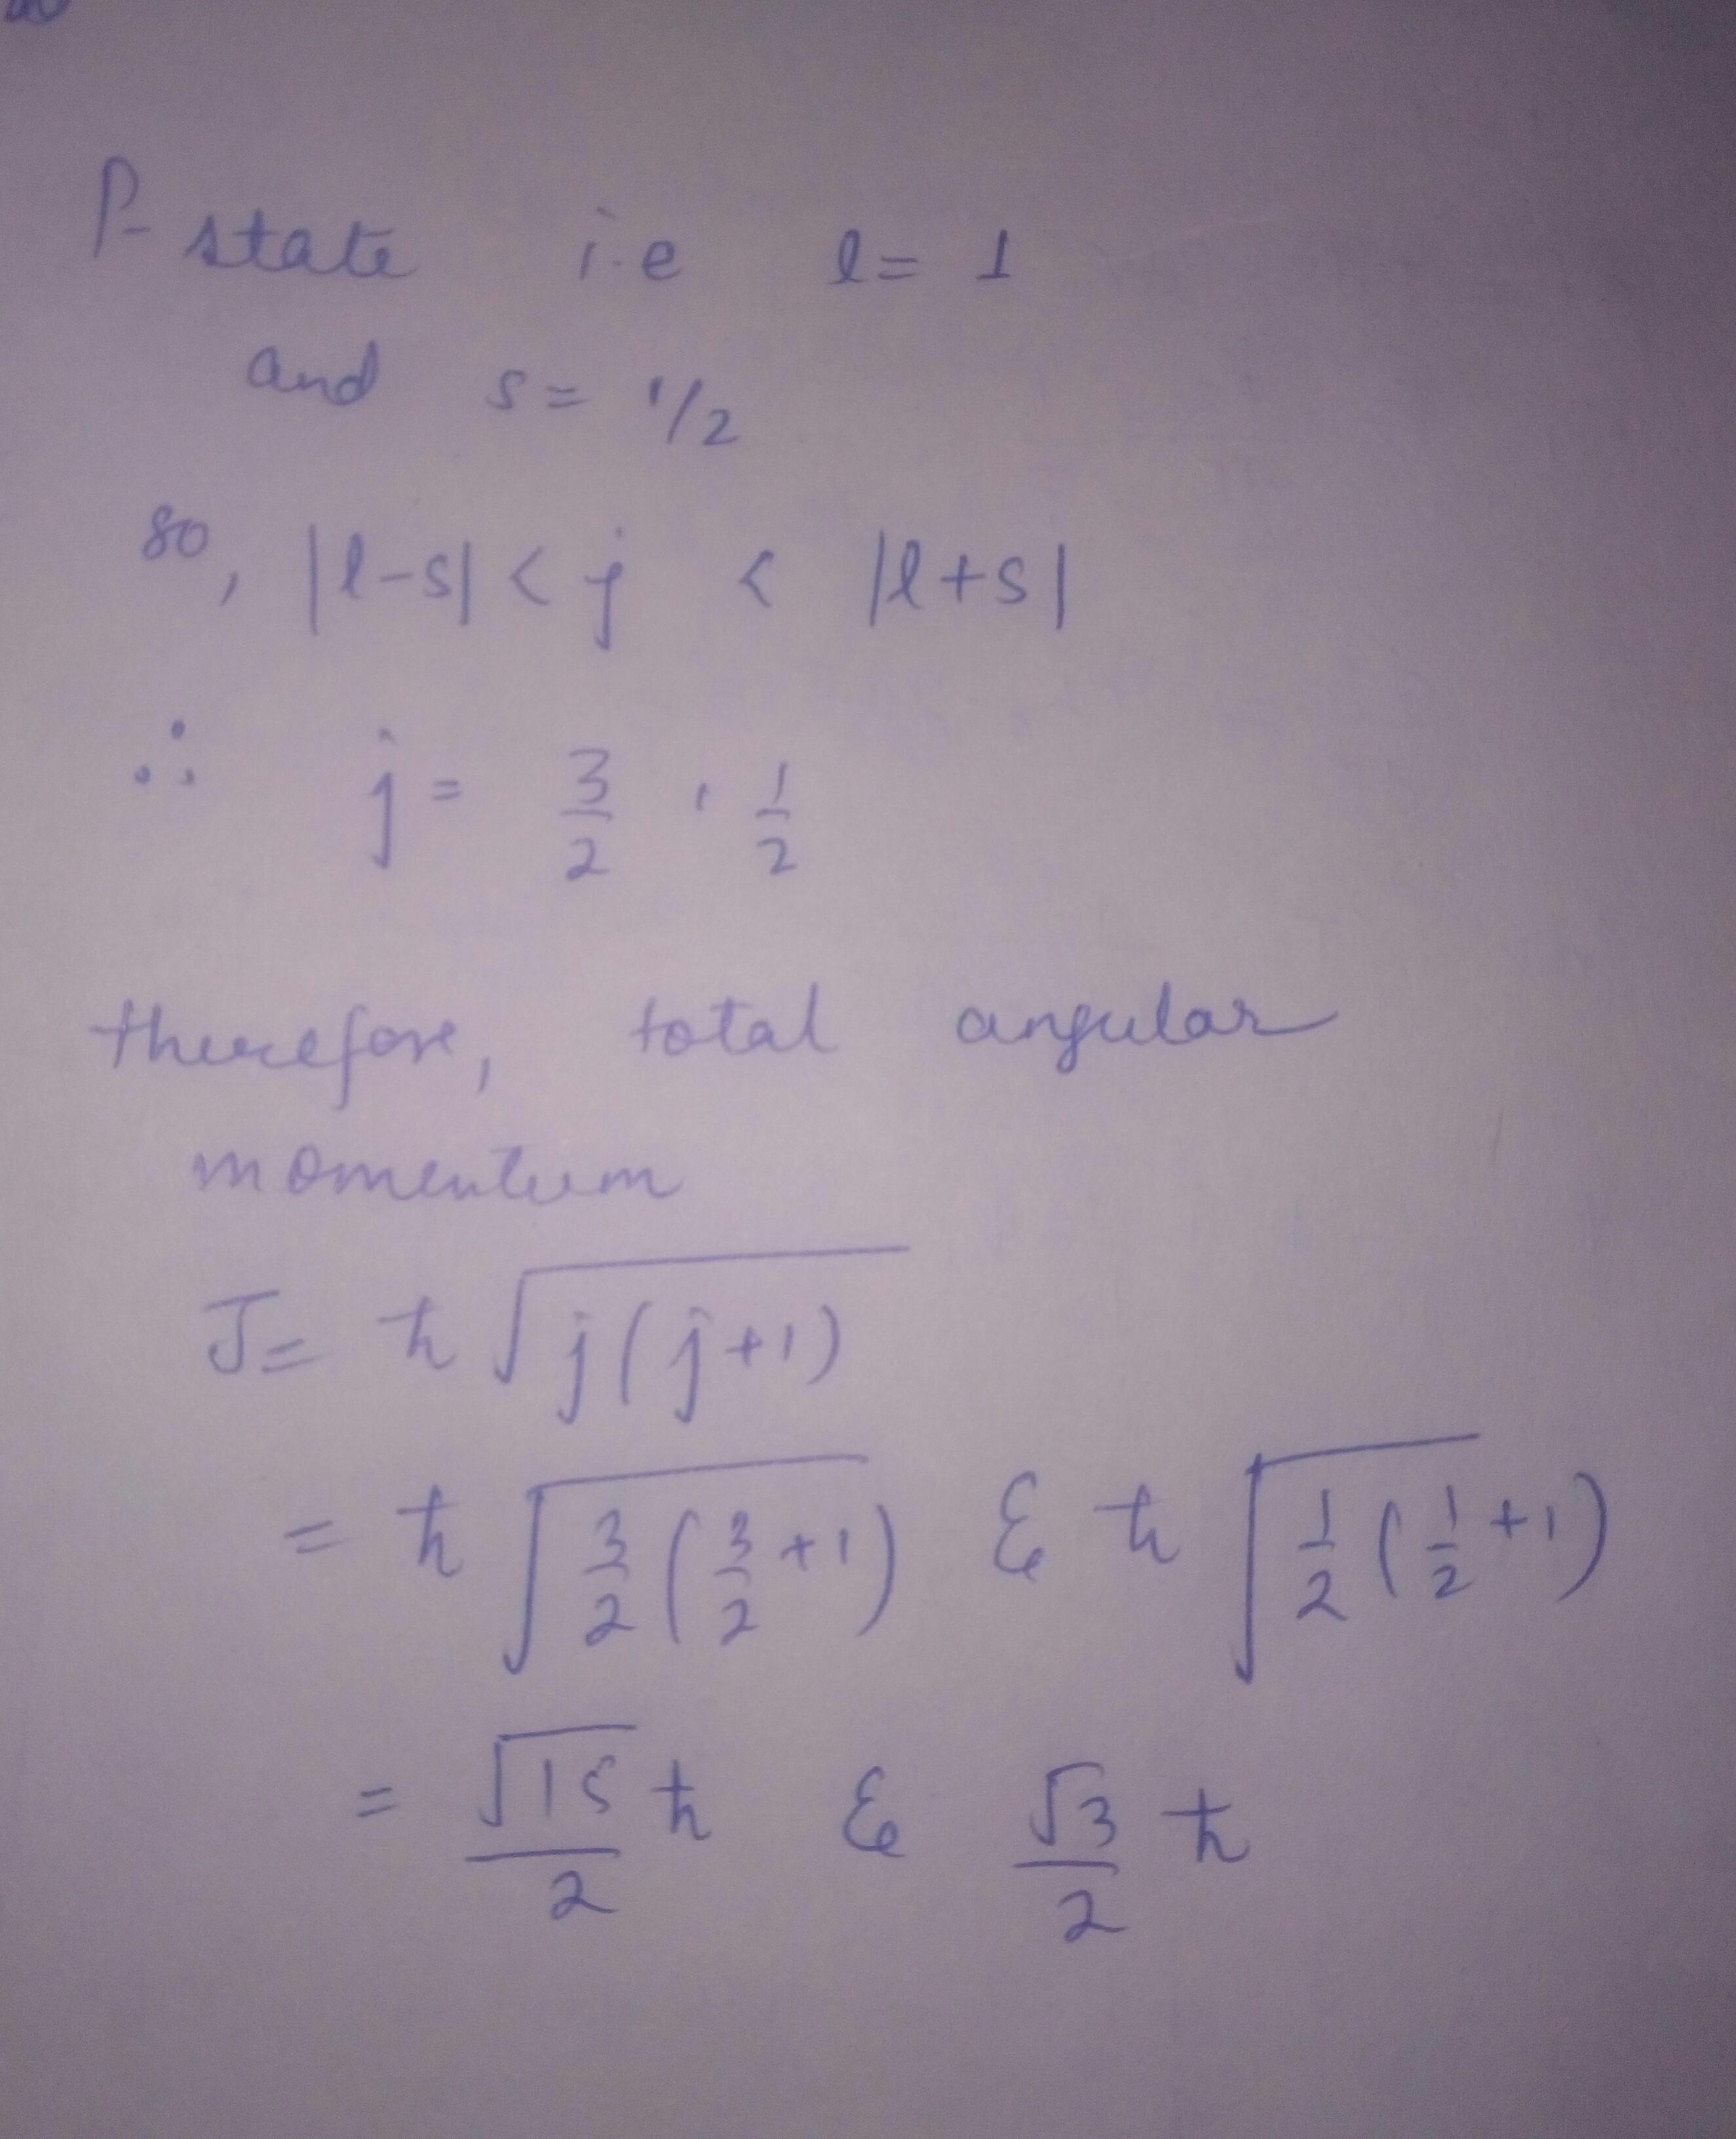 P-state i.e l= 1
and s= 1/2
so, |l-s| < j < |l+s|
∴ j = 3/2 , 1/2
therefore, total angular
momentum
J= ħ √j(j+1)
= ħ √3/2(3/2+1) & ħ √1/2(1/2+1)
= √15/2 ħ & √3/2 ħ